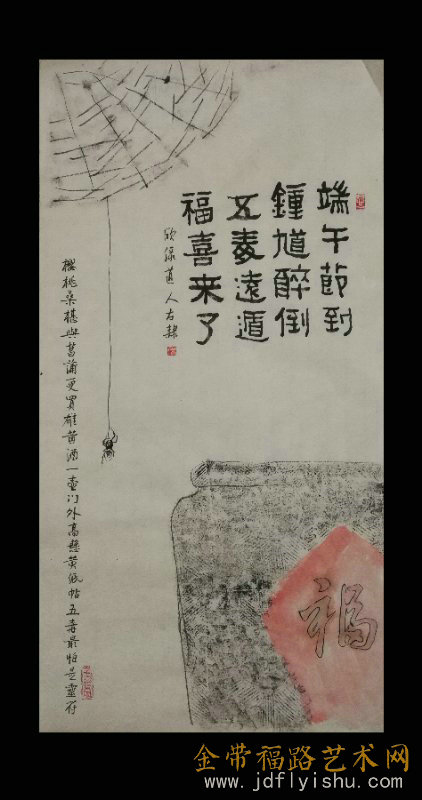 端午節到
鍾馗醉倒
五毒遠遁
福喜来了
道人右隸
櫻桃桑椹與菖蒲更買雄黄酒一壷门外高懸黄紙帖五毒最怕是靈符
福
金带福路艺术网
www.jdflyishu.com